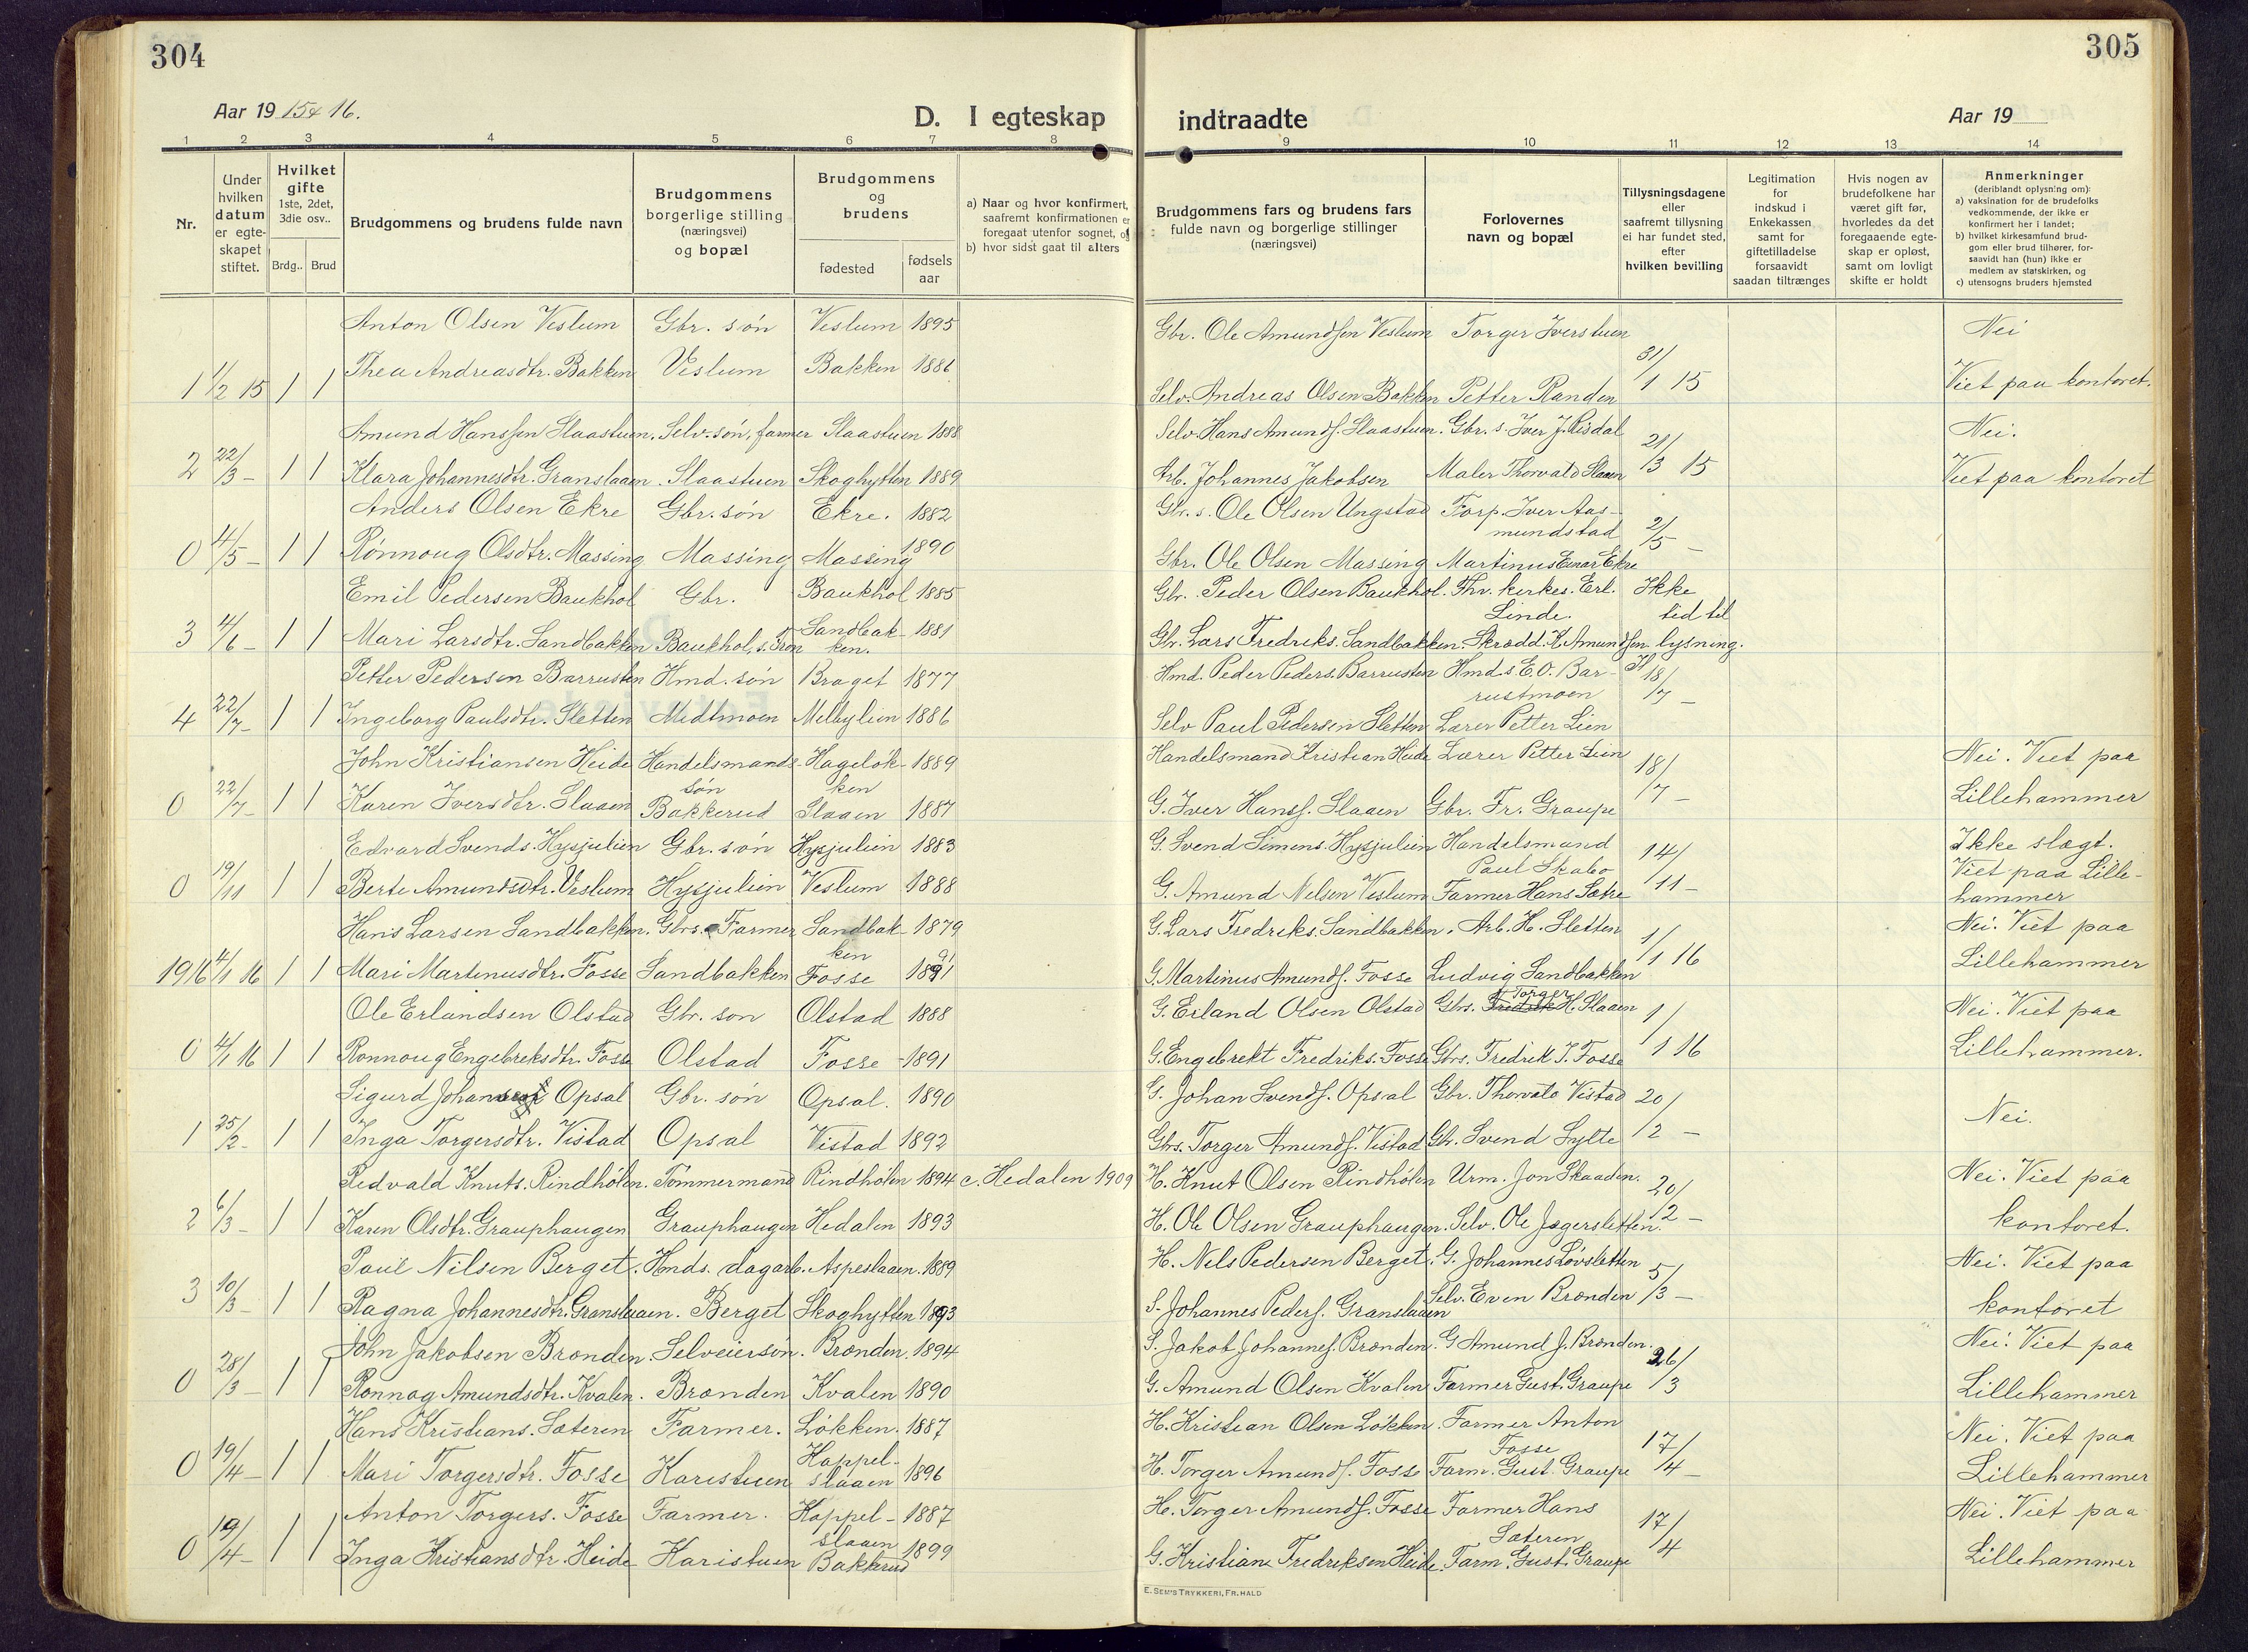 304
305
Aar 19 15 & 16.
D. I egteskap
indtraadte
Aar 19
1 2 3 4 5 6 7 8 9 10 11 12 13 14
Nr.
Under hvilken datum er egteskapet stiftet.
Hvilket gifte 1ste, 2det, 3die osv..
Brdg.. Brud
Brudgommens og brudens fulde navn
Brudgommens borgerlige stilling (næringsvei) og bopæl
Brudgommens og brudens
fødested
fødsels aar
a) Naar og hvor konfirmert, saafremt konfirmationen er foregaat utenfor sognet, og
b) hvor sidst gaat til alters
Brudgommens fars og brudens fars fulde navn og borgerlige stillinger (næringsvei)
Forlovernes navn og bopæl
Tillysningsdagene eller saafremt tillysning ei har fundet sted, efter hvilken bevilling
Legitimation for indskud i Enkekassen samt for giftetilladelse forsaavidt saadan tiltrænges
Hvis nogen av brudefolkene har været gift før, hvorledes da det foregaaende egteskap er opløst, samt om lovligt skifte er holdt
Anmerkninger (deriblandt oplysning om):
a) vaksination for de brudefolks vedkommende, der ikke er konfirmert her i landet;
b) hvilket kirkesamfund brudgom eller brud tilhører, forsaavidt han (hun) ikke er medlem av statskirken, og
c) utensogns bruders hjemsted
Anton Olsen Veslum Gbr. søn Veslum 1895 Gbr. Ole Amundsen Veslum Torger Iverstuen Nei
1 1/2 15 1 1 Thea Andreasdtr. Bakken Veslum Bakken 1886 Selv. Andreas Olsen Bakken Petter Randen 31/1 15 Viet paa kontoret.
Amund Hanssen Slaastuen. Selv. søn, farmer Slaastuen 1888 Selv. Hans Amunds. Slaastuen. Gbr. s. Iver J. Risdal Nei.
2 22/3 – 1 1 Klara Johannesdtr. Granslaaen. Slaastuen Skoghytten 1889 Arb. Johannes Jakobsen Maler Thorvald Slaaen 21/3 15 Viet paa kontoret
Anders Olsen Ekre Gbr. søn Ekre. 1882 Gbr. s. Ole Olsen Ungstad Forp. Iver Aasmundstad
0 4/5 – 1 1 Rønnoug Olsdtr. Massing Massing Massing 1890 Gbr. Ole Olsen Massing Martinus Einar Ekre 2/5 –
Emil Pedersen Baukhol Gbr. Baukhol 1885 Gbr. Peder Olsen Baukhol. Thv. kirkes. Erl. Linde. Ikke tid til
3 4/6 – 1 1 Mari Larsdtr. Sandbakken Baukhol, s. Fron Sandbakken. 1881 Gbr. Lars Fredriks. Sandbakken. Skrædd. K. Amundsen lysning.
Petter Pedersen Barrusten Hmd. søn Braget 1877 Hmd. Peder Peders. Barrusten Hmd. s. E. O. Barrustmoen 18/7 –
4 22/7 – 1 1 Ingeborg Paulsdtr. Sletten Midtmoen Melbylien 1886 Selv Paul Pedersen Sletten Lærer Petter Lien
John Kristiansen Heide Handelsmands søn Hageløkken 1889 Handelsmand Kristian Heide Lærer Petter Lien Nei. Viet paa
0 22/7 – 1 1 Karen Iversdtr. Slaaen Bakkerud Slaaen 1887 G. Iver Hanss. Slaaen Gbr. Fr. Graupe 18/7 – Lillehammer
Edvard Svends. Hysjulien Gbr. søn Hysjulien 1883 G. Svend Simens. Hysjulien Handelsmand Paul Skabo Ikke slægt.
0 19/11 1 1 Berte Amundsdtr. Veslum Hysjulien Veslum 1888 G. Amund Nelsen Veslum Farmer Hans Sætre 14/11 – Viet paa Lillehammer
Hans Larsen Sandbakken. Gbrs. Farmer Sandbakken 1879 G. Lars Fredreks. Sandbakken. Arb. H. Sletten Nei. Viet paa
1916 4/1 16 1 1 Mari Martinusdtr. Fosse Sandbakken Fosse 1891 G. Martinus Amunds. Fosse Ludvig Sandbakken 1/1 16 Lillehammer
Ole Erlandsen Olstad Gbr. son Olstad 1888 G. Erland Olsen Olstad Gbrs. Torger H. Slaaen Nei. Viet paa
0 4/1 16 1 1 Ronnoug Engebreksdtr. Fosse Olstad Fosse 1891 G. Engebrekt Fredriks. Fosse Gbrs. Fredrik T. Fosse 1/1 16 Lillehammer.
Sigurd Johansen Opsal Gbr. søn Opsal. 1890 G. Johan Svends. Opsal Gbr. Thorvald Vistad
1 25/2 – 1 1 Inga Torgersdtr. Vistad Opsal Vistad 1892 Gbs. Torger Amunds. Vistad Gbr. Svend Sylte 20/2 – Nei.
Redvald Knuts. Rindhølen. Tømmermand Rindhølen 1894 c. Hedalen 1909 H. Knut Olsen Rindhølen Urm. Jon Skaaden. Nei. Viet paa
2 6/3 – 1 1 Karen Olsdtr. Grauphaugen Grauphaugen Hedalen 1893 H. Ole Olsen Grauphaugen. Selv. Ole Jægersletten. 20/2 – kontoret.
Paul Nilsen Berget. Hmds. dagarb. Aspeslaaen. 1889 H. Nels Pedersen Berget. G. Johannes Løvsletten Nei. Viet paa
3 10/3 – 1 1 Ragna Johannesdtr. Granslaaen. Berget Skoghytten 1893 S. Johannes Peders. Granslaaen Selv. Even Brænden 5/3 – kontoret
John Jakobsen Brænden. Selveiersøn. Brænden. 1894 S. Jakob Johannes. Brænden. G Amund J. Brænden. Nei. Viet paa
0 28/3 – 1 1 Rønnog Amundsdtr. Kvalen. Brænden Kvalen 1890 G. Amund Olsen Kvalen Farmer Gust. Graupe 26/3 Lillehammer
Hans Kristians. Sæteren Farmer. Løkken. 1887 H. Kristian Olsen Løkken. Farmer Anton Fosse Nei. Viet paa
0 19/4 – 1 1 Mari Torgersdtr. Fosse Karistuen Kappelslaaen 1896 H. Torger Amunds. Fosse Farm. Gust. Graupe 17/4 – Lillehammer
Anton Torgers. Fosse Farmer. Kappelslaaen 1887 H. Torger Amunds. Fosse Farmer Hans Sæteren Nei. Viet paa
0 19/4 – 1 1 Inga Kristiansdtr. Heide Karistuen Bakkerud 1899 G. Kristian Fredreksen Heide. Farm. Gust. Graupe 17/4 Lillehammer
E. SEM'S TRYKKERI, FR.HALD